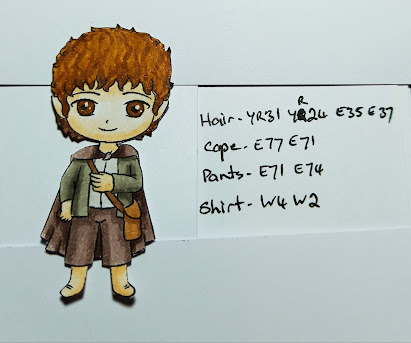 Hair - YR31 YR24 E35 E37
Cape - E77 E71
Pants - E71 E74
Shirt - W4 W2